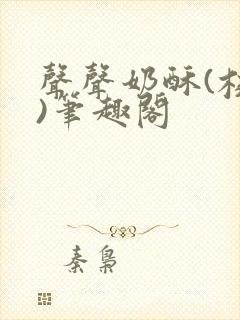 聲聲奶酥(校
)筆趣閣
秦梟